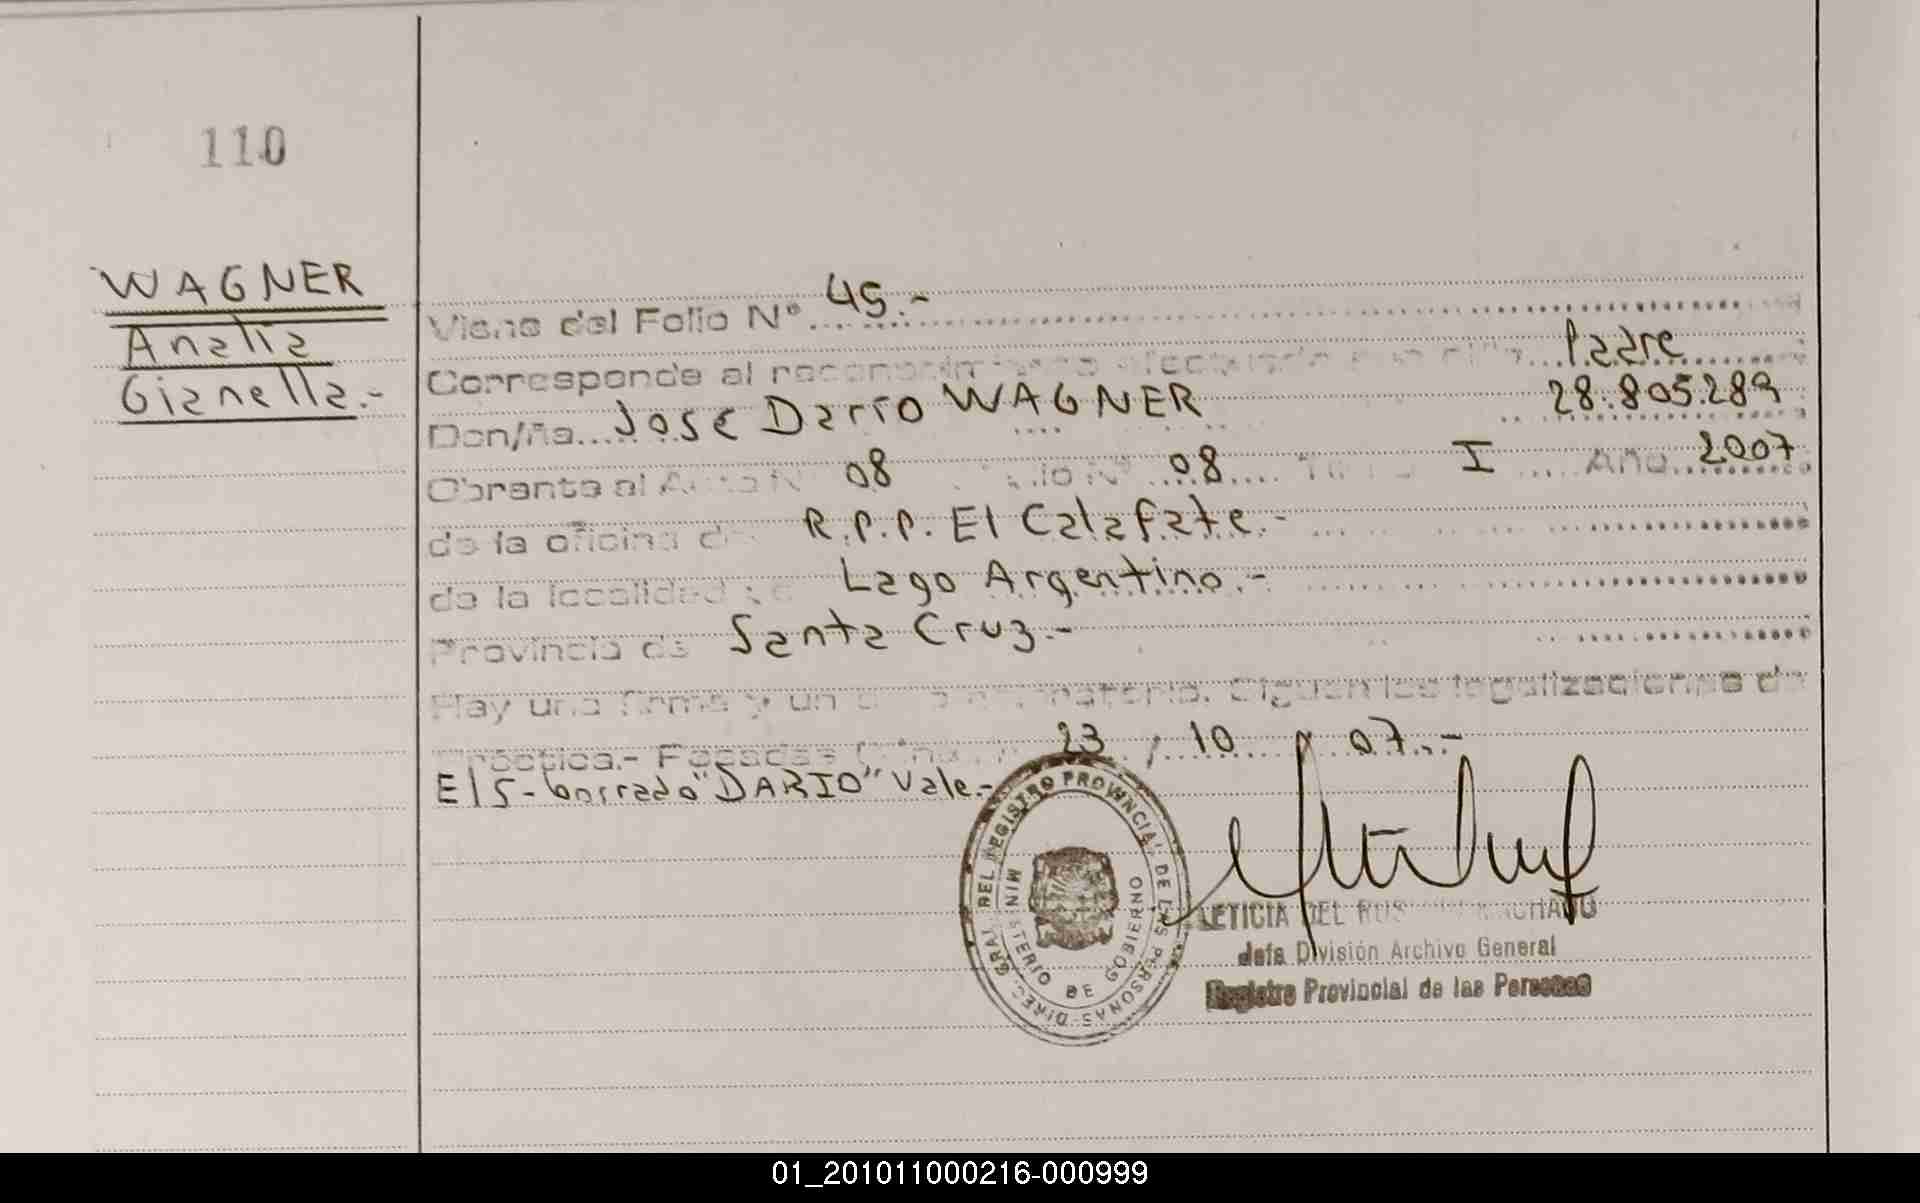 110
WAGNER
Analia
Gianella.-
Viene del Folio N° 45.-
Corresponde al reconocimiento efectuado Padre
Don/ña José Darío WAGNER 28.805.289
Obrante al Acta N 08 Folio N° 08 I Año 2007
de la oficina de R.P.P. El Calafate.-
de la localidad de Lago Argentino.-
Provincia de Santa Cruz.-
Hay una firma y un Siguen las legalizaciones de
práctica.- Posadas 23 / 10 / 07.-
E/S- borrado "DARIO" Vale.-
DIREC. GRAL. DEL REGISTRO PROVINCIAL DE LAS PERSONAS
MINISTERIO DE GOBIERNO
LETICIA DEL MACHADO
Jefa División Archivo General
Registro Provincial de las Personas
01_201011000216-000999